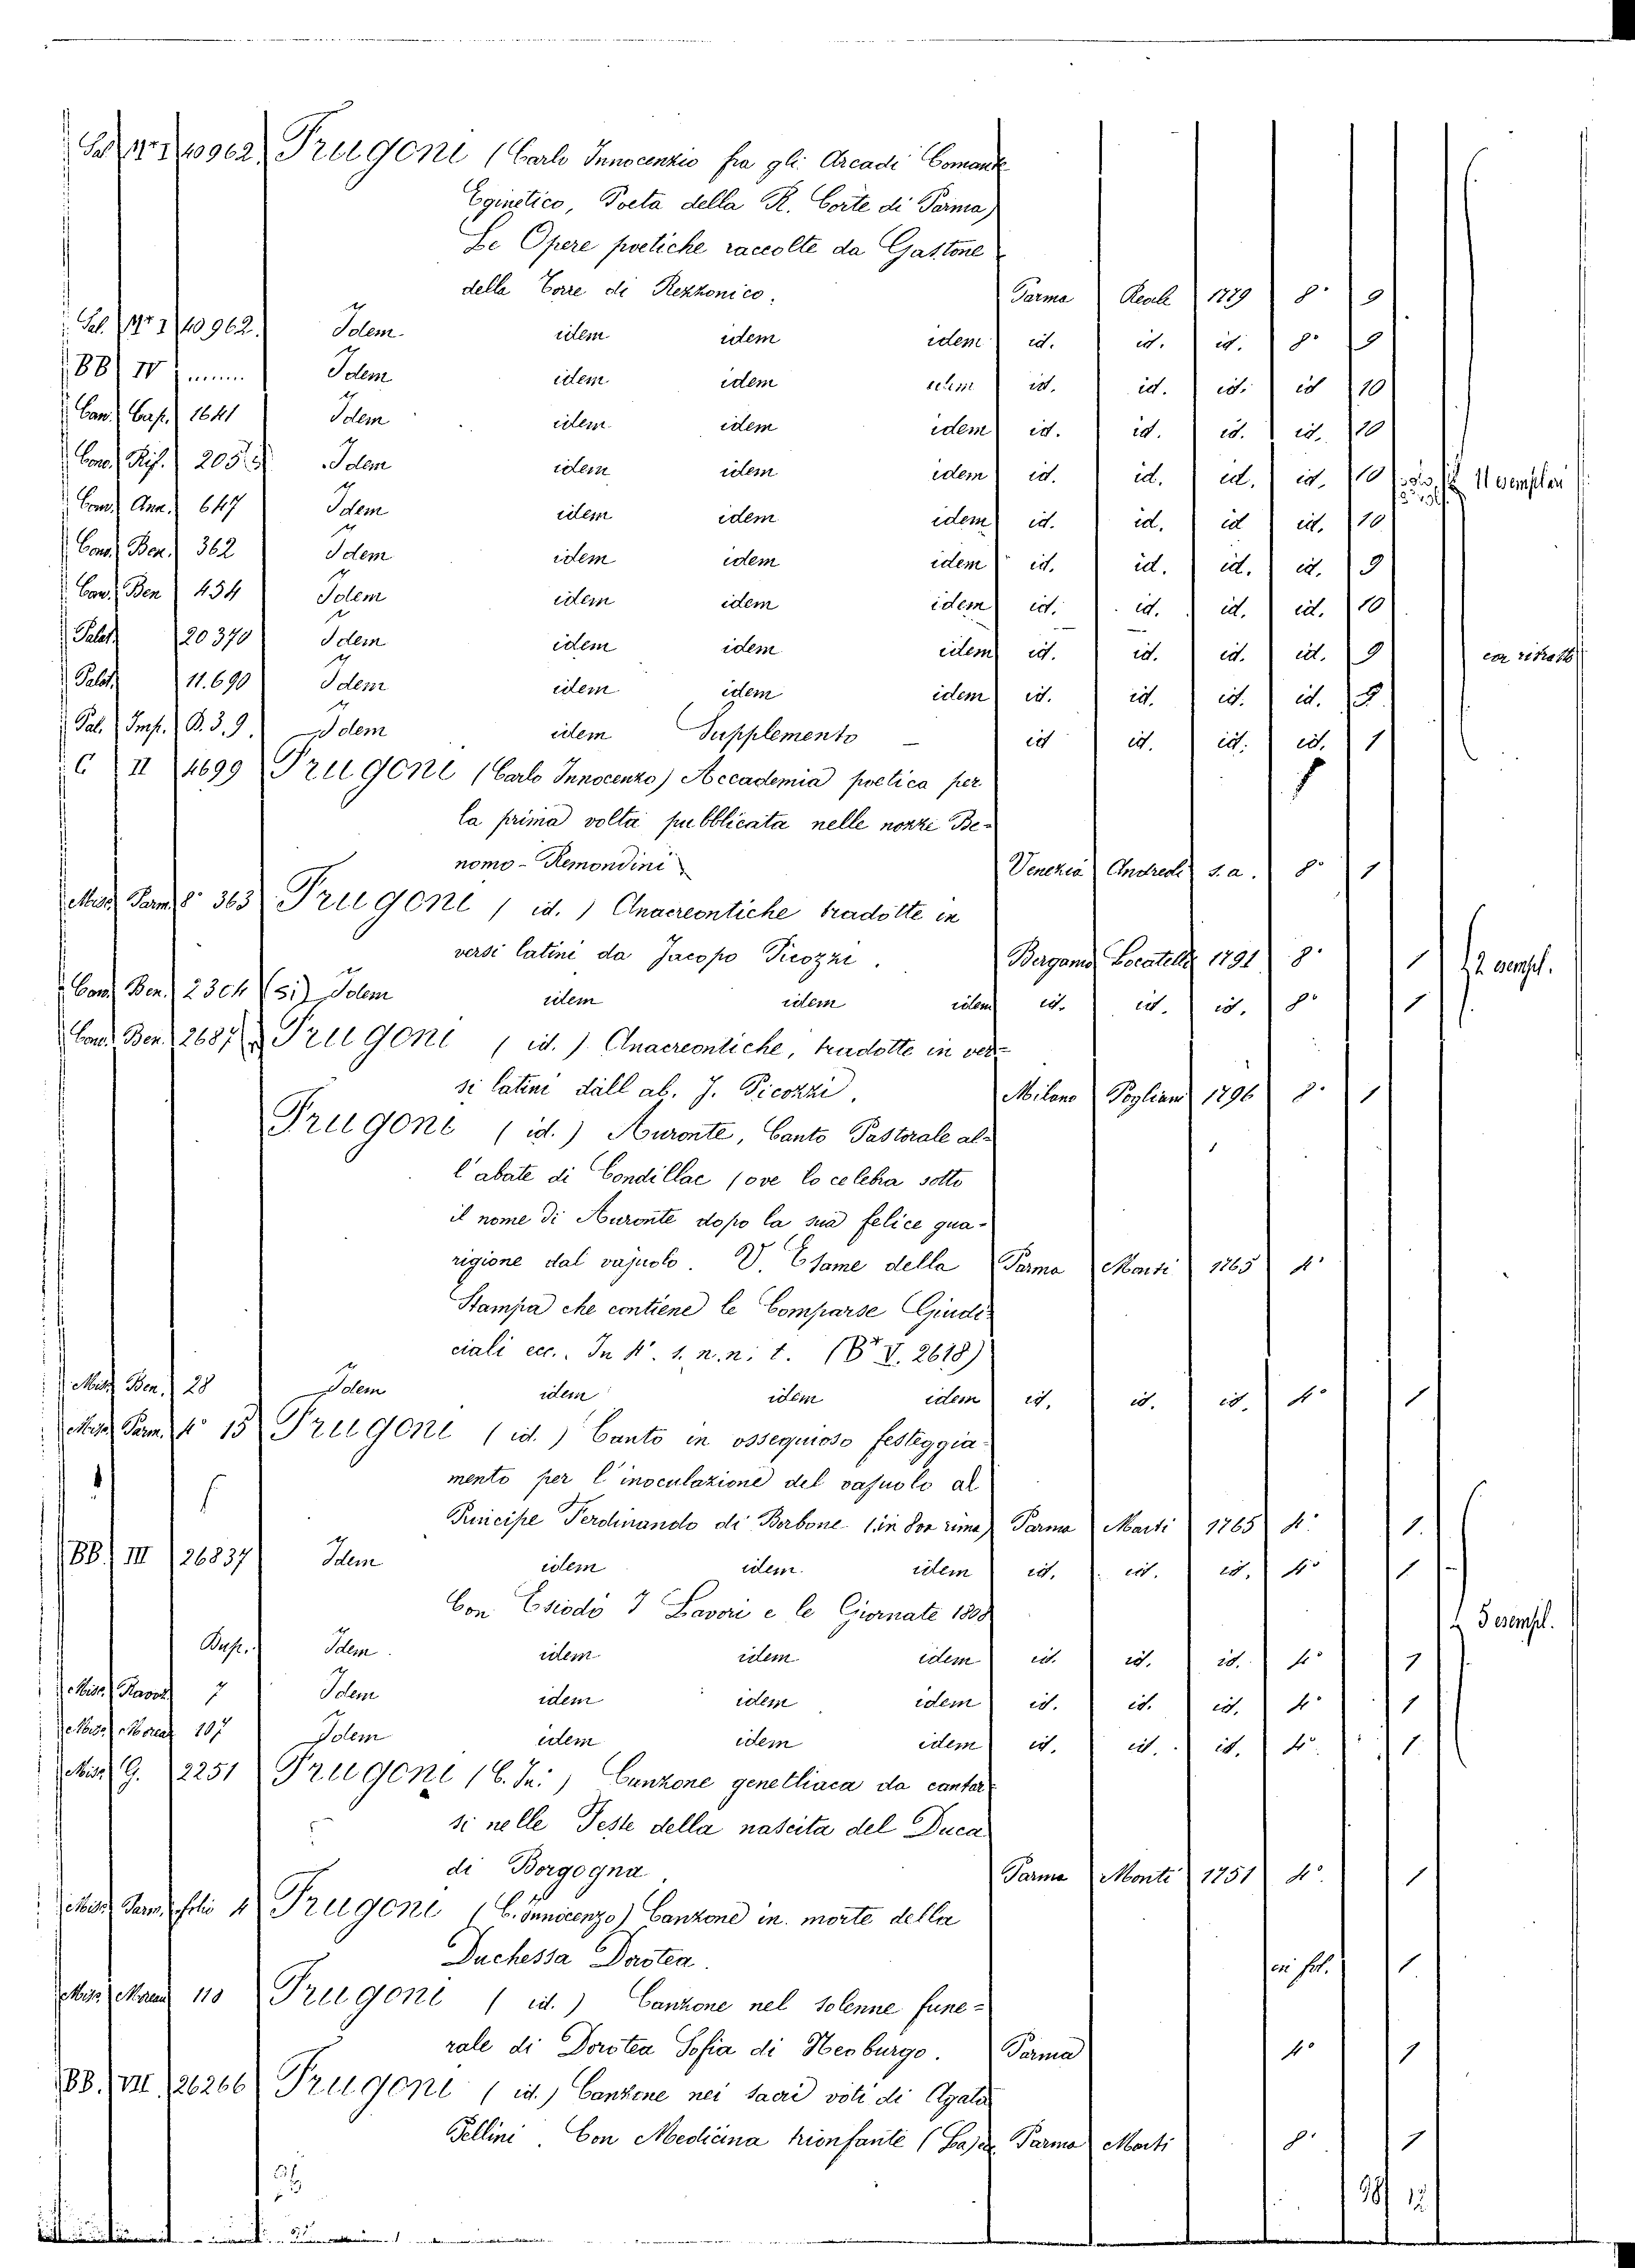 Sal. Mr I 40962 Frugoni (Carlo Innocenzio fra gli Arcadi Comante
Eginetico, Poeta della R. Corte di Parma)
Le Opere poetiche raccolte da Gastone
della Torre di Rezzonico. Parma Reale 1779 8° 9
Sal. Mr I 40962. Idem idem idem idem id. id. id. 8° 9
BB IV ....... Idem idem idem idem id. id. id. id 10
Can. Cap. 1641 Idem idem idem idem id. id. id. id. 10
Conv. Rif. 205 Idem idem idem idem id. id. id. id. 10 11 esemplari
Conv. Ann. 647 Idem idem idem idem id. id. id id. 10
Conv. Ben. 362 Idem idem idem idem id. id. id. id. 9
Conv. Ben 454 Idem idem idem idem id. id. id. id. 10
Palat. 20370 Idem idem idem idem id. id. id. id. 9 con ritratto
Palat. 11.690 Idem idem idem idem id. id. id. id. 9
Pal. Imp. B.3.9. Idem idem Supplemento — id id. id. id. 1
C II 4699 Frugoni (Carlo Innocenzo) Accademia poetica per
la prima volta pubblicata nelle nozze Be-
nomo - Remondini Venezia s.a. 8° 1
Misc. Parm. 8° 363 Frugoni (id.) Anacreontiche tradotte in
versi latini da Jacopo Picozzi. Bergamo Locatelli 1791 8° 1 2 esempl.
Conv. Ben. 2304 (Si) Idem idem idem idem id. id. id. 8° 1
Conv. Ben. 2687 Frugoni (id.) Anacreontiche, tradotte in ver-
si latini dall ab. J. Picozzi. Milano Pogliani 1796 8° 1
Frugoni (id.) Auronte, Canto Pastorale al-
l'abate di Condillac (ove lo celebra sotto
il nome di Auronte dopo la sua felice gua-
rigione dal vajuolo. V. Esame della Parma Monti 1765 4°
Stampa che contiene le Comparse Giudi-
ciali ecc.. In 4°. 1. n. n. 1. (B* V. 2618)
Misc. Ben. 28 Idem idem idem idem id. id. id. 4° 1
Misc. Parm. 4° 15 Frugoni (id.) Canto in ossequioso festeggia-
mento per l'inoculazione del vajuolo al
Principe Ferdinando di Borbone (in 8va rima) Parma Monti 1765 4° 1.
BB. III 26837 Idem idem idem. idem id. id. id. 4° 1
Con Esiodo I Lavori e le Giornate 1808
5 esempl.
Dup. Idem idem idem idem id. id. id. 4° 1
Misc. 7 Idem idem idem idem id. id. id. 4° 1
Misc. Moreau 107 Idem idem idem idem id. id. id. 4° 1
Misc. G. 2251 Frugoni (C. In.) Canzone genetliaca da cantar-
si nelle Feste della nascita del Duca
di Borgogna Parma Monti 1751 4° 1
Misc. Parm. folio 4 Frugoni (C. Innocenzo) Canzone in morte della
Duchessa Dorotea. in fol. 1.
Misc. Moreau 110 Frugoni (id.) Canzone nel solenne fune-
rale di Dorotea Sofia di Neoburgo. Parma 4° 1
BB. VII 26266 Frugoni (id.) Canzone nei sacri voti di Agata
Pellini. Con Medicina trionfante Parma Monti 8° 1
98 12